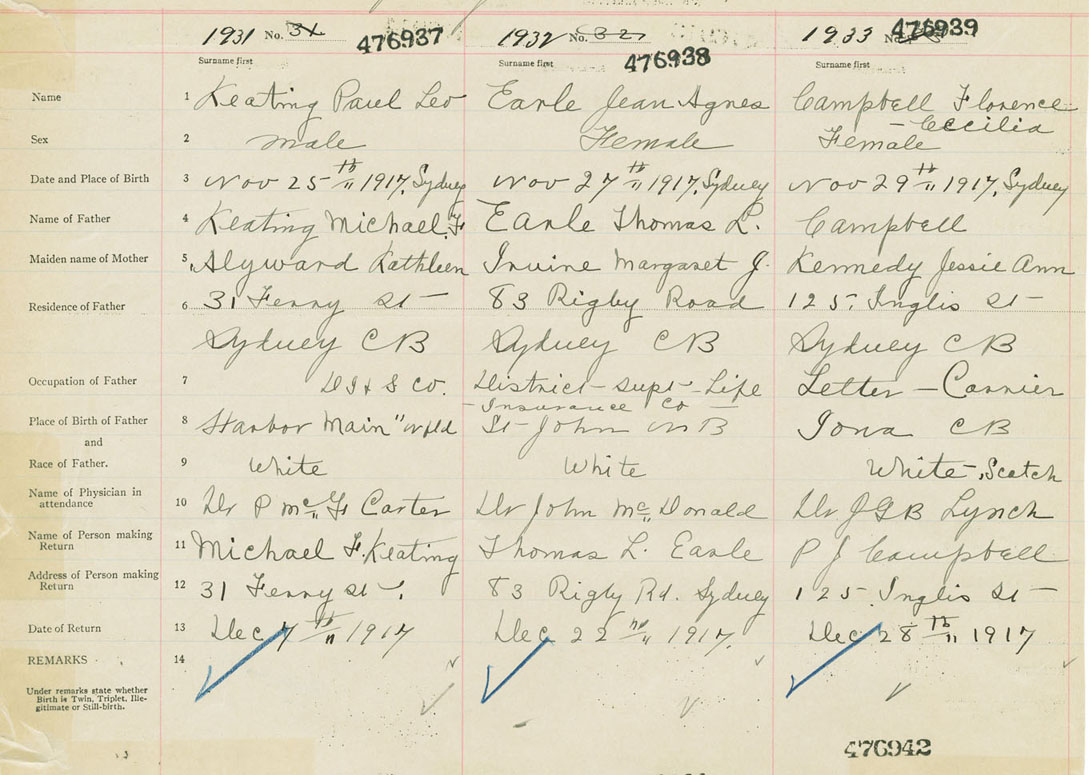 1931 No. 31 476937 1932 No. 32 476938 1933 No. 476939
Surname first Surname first Surname first
Name 1 Keating Paul Leo Earle Jean Agnes Campbell Florence
- Ceccilia
Sex 2 male Female Female
Date and Place of Birth 3 Nov 25th 1917, Sydney Nov 27th 1917, Sydney Nov 29th 1917, Sydney
Name of Father 4 Keating Michael F Earle Thomas L. Campbell
Maiden name of Mother 5 Alyward Kathleen Irvine Margaret J. Kennedy Jessie Ann
Residence of Father 6 31 Ferry St - 83 Rigby Road 125 Inglis St -
Sydney CB Sydney CB Sydney CB
Occupation of Father 7 D I & S Co. District - Supt - Life Letter - Carrier
- Insurance Co -
Place of Birth of Father 8 Harbor Main "Nfld St - John NB Iona CB
and
Race of Father. 9 White White White - Scotch
Name of Physician in
attendance 10 Dr P McF Carter Dr John McDonald Dr JGB Lynch
Name of Person making
Return 11 Michael F. Keating Thomas L. Earle P J Campbell
Address of Person making
Return 12 31 Ferry St -. 83 Rigby Rd. Sydney 125 Inglis St -
Date of Return 13 Dec 7th 1917 Dec 22nd 1917. Dec 28th 1917
REMARKS 14
Under remarks state whether
Birth is Twin, Triplet, Ille-
gitimate or Still-birth.
476942